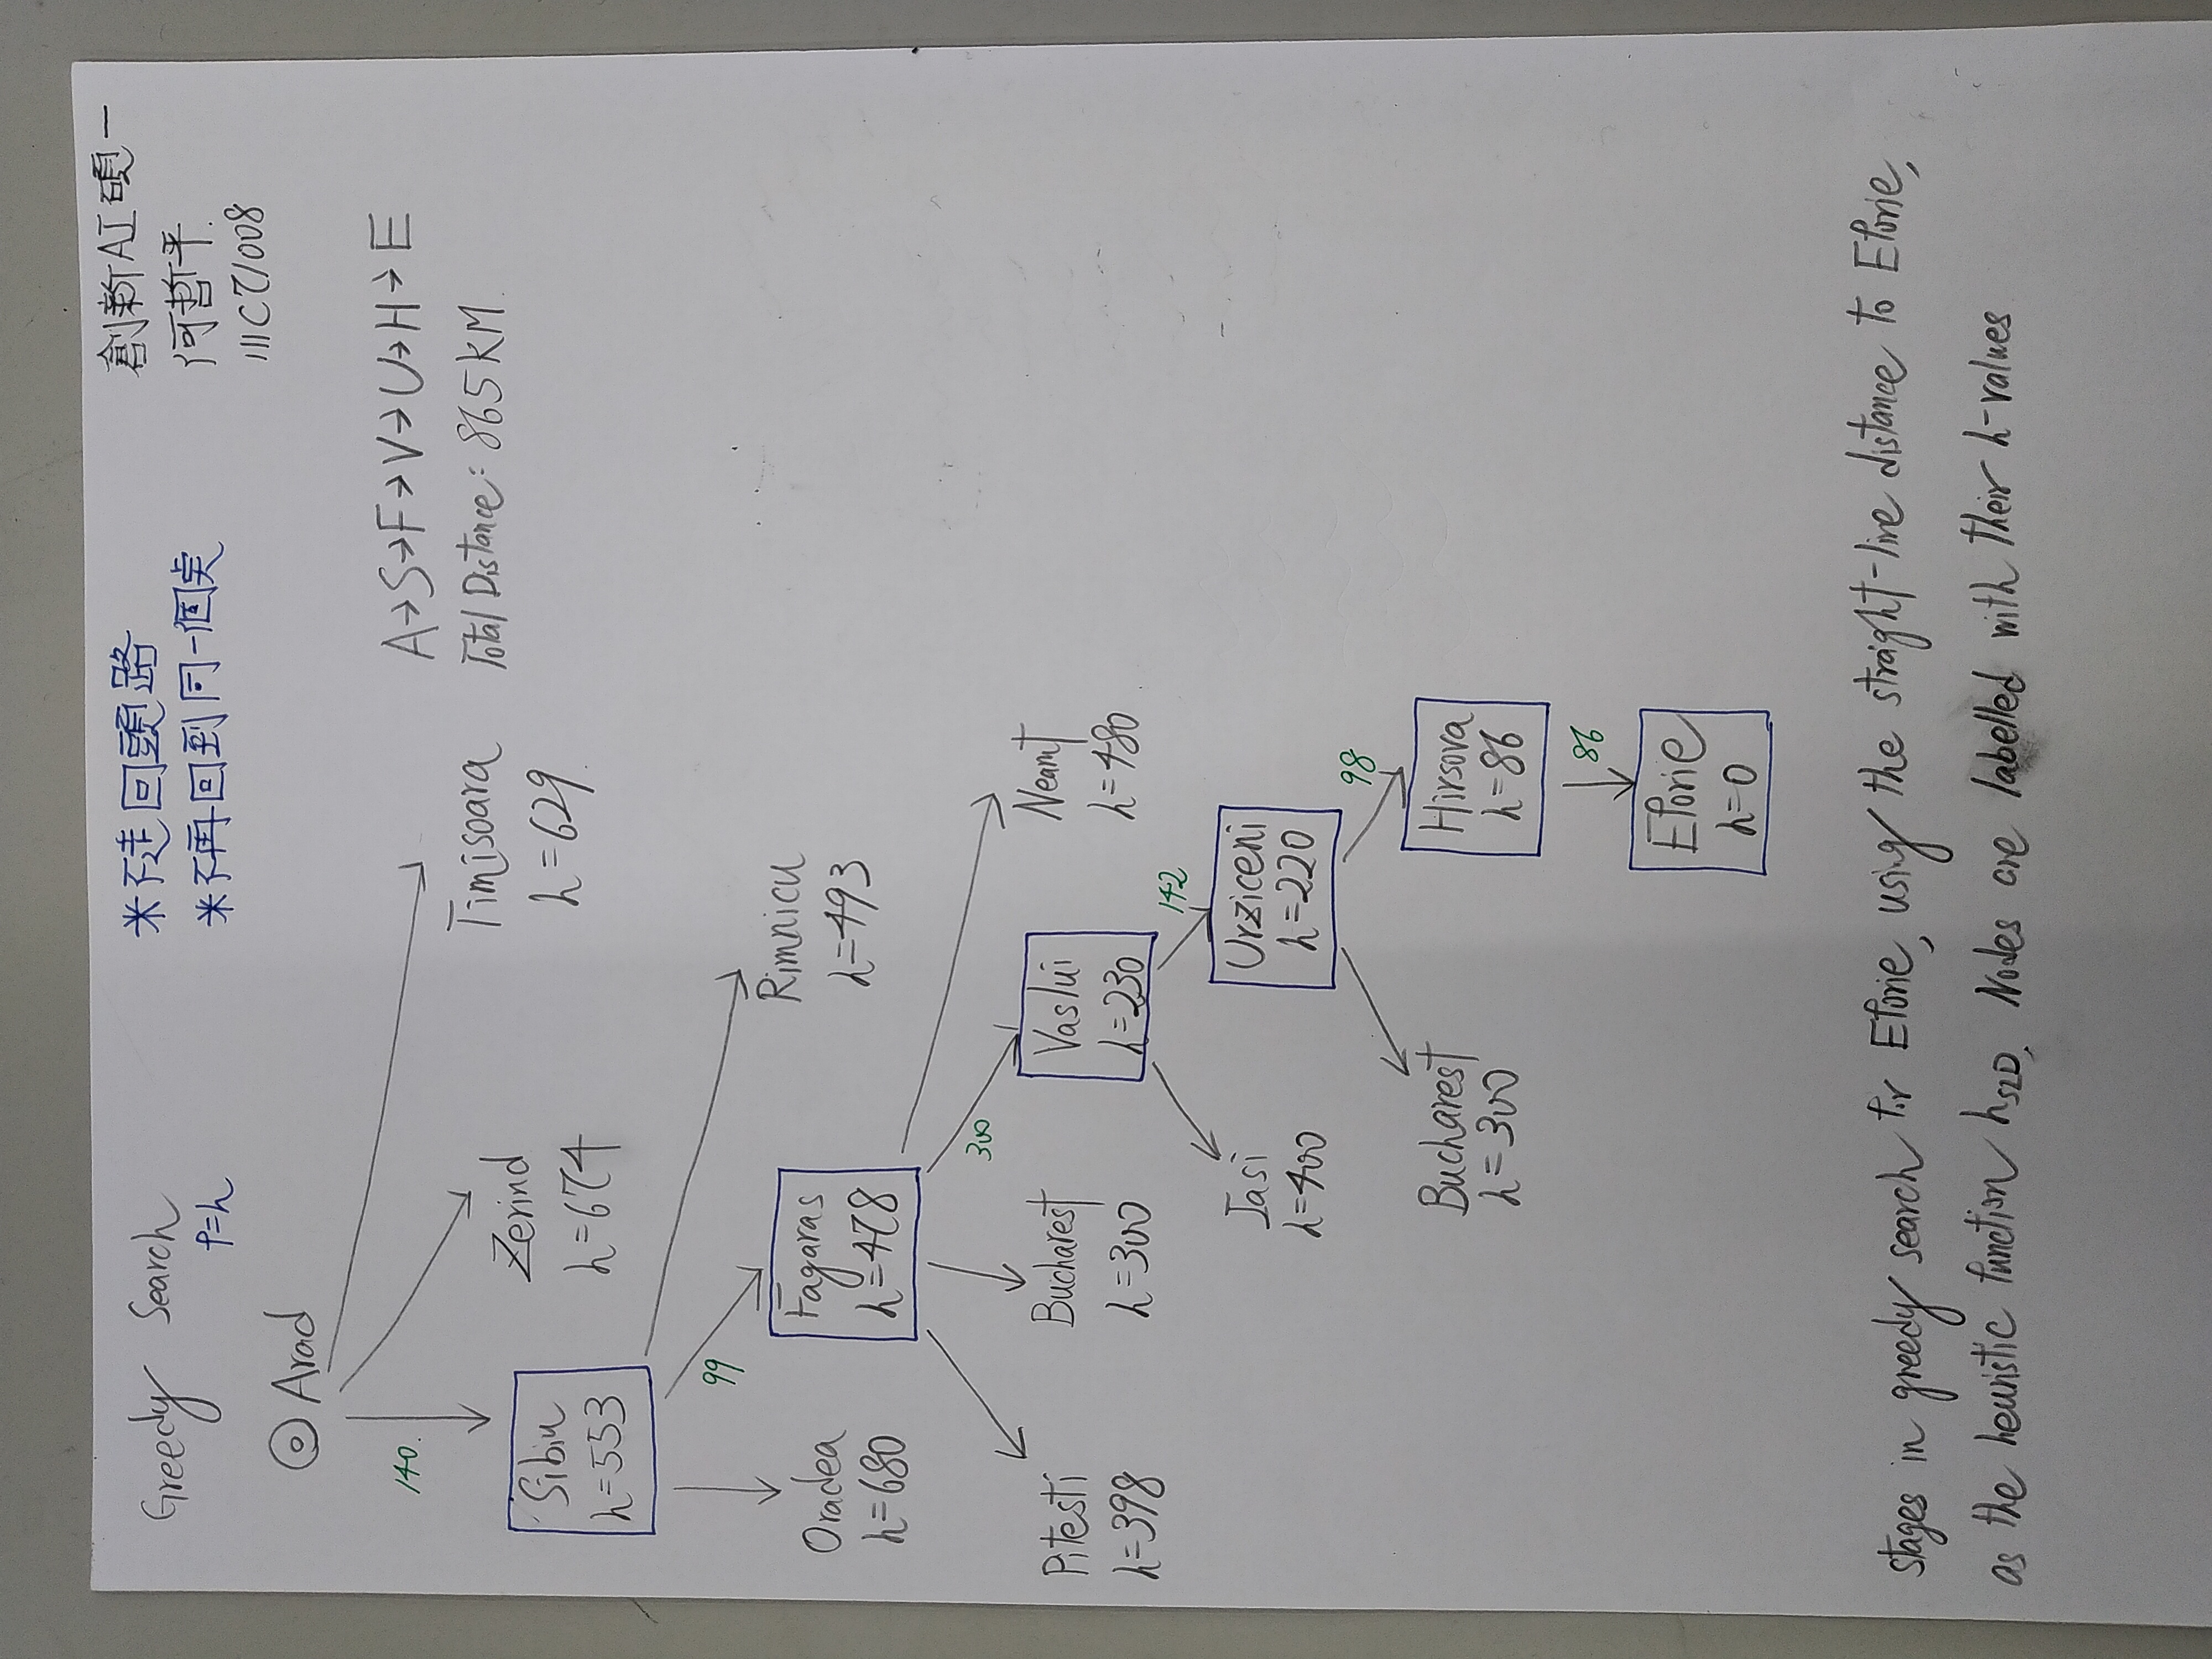 Greedy Search
f=h
*不走回頭路
*不再回到同一個点
創新AI碩一
何哲平
111C71008
Arad
140.
A→S→F→V→U→H→E
Total Distance: 865KM.
Sibiu
h=553
Zerind
h=674
Timisoara
h=629.
99
Oradea
h=680
Fagaras
h=478
Rimnicu
h=493
300
Pitesti
h=398
Bucharest
h=300
Vaslui
h=230
Neamt
h=480
142
Iasi
h=400
Urziceni
h=220
98
Bucharest
h=300
Hirsova
h=86
86
Eforie
h=0
stages in greedy search for Eforie, using the straight-line distance to Eforie,
as the heuristic function hSLD. Nodes are labelled with their h-values